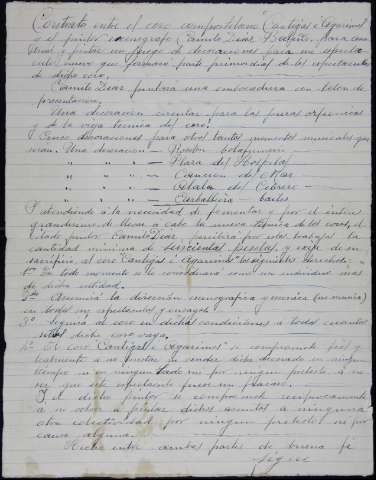 Contrato entre el coro compostelano Cantigas e Agarimos
y el pintor escenógrafo Camilo Díaz Baliño, para cons
truir y pintar un juego de decoraciones para un espectá
culo nuevo que formará parte primordial de los espectaculos
de dicho coro.
Camilo Diaz pintará una embocadura con telon de
presentacion.
Una decoracion circular para las piezas orfeonicas
y de la vieja tecnica del coro.
Cinco decoraciones para otros tantos momentos musicales que
seran. Una decoracion — 
" " — Plaza del Hospital
" " — Cancion del Mar
" " — Alala del Cebrero —
" " — Carballeira — bailes
Y atendiendo á la necesidad de fomentar y por el interes
grandisimo de llevar á cabo la nueva de los coros, el
citado pintor Camilo Diaz, percibirá por estos trabajos la
cantidad minima de seiscientas pesetas, y exije de su
sacrificio, al coro Cantigas é Agarimos los siguientes derechos. —
1º En todo momento se le considerará como un individuo mas
de dicha entidad.
2º Asumirá la dirección escenografica y escénica
en todos sus espectaculos y ensayos.
3º Seguirá al coro en dichas condiciones a todos cuantos
sitios dicho coro vaya.
4º El coro Cantigas é Agarimos se compromete fiel y
lealmente á no prestar ni vender dicho decorado en ningun
tiempo ni en ningun lado ni por ningun pretexto á no
ser que este espectaculo fuese un fracaso.
Y el dicho pintor se compromete reciprocamente
a no volver a pintar dichos asuntos a ninguna
otra colectividad por ningun pretexto ni por
causa alguna.
Hecho entre ambas partes de buena fe
sigue